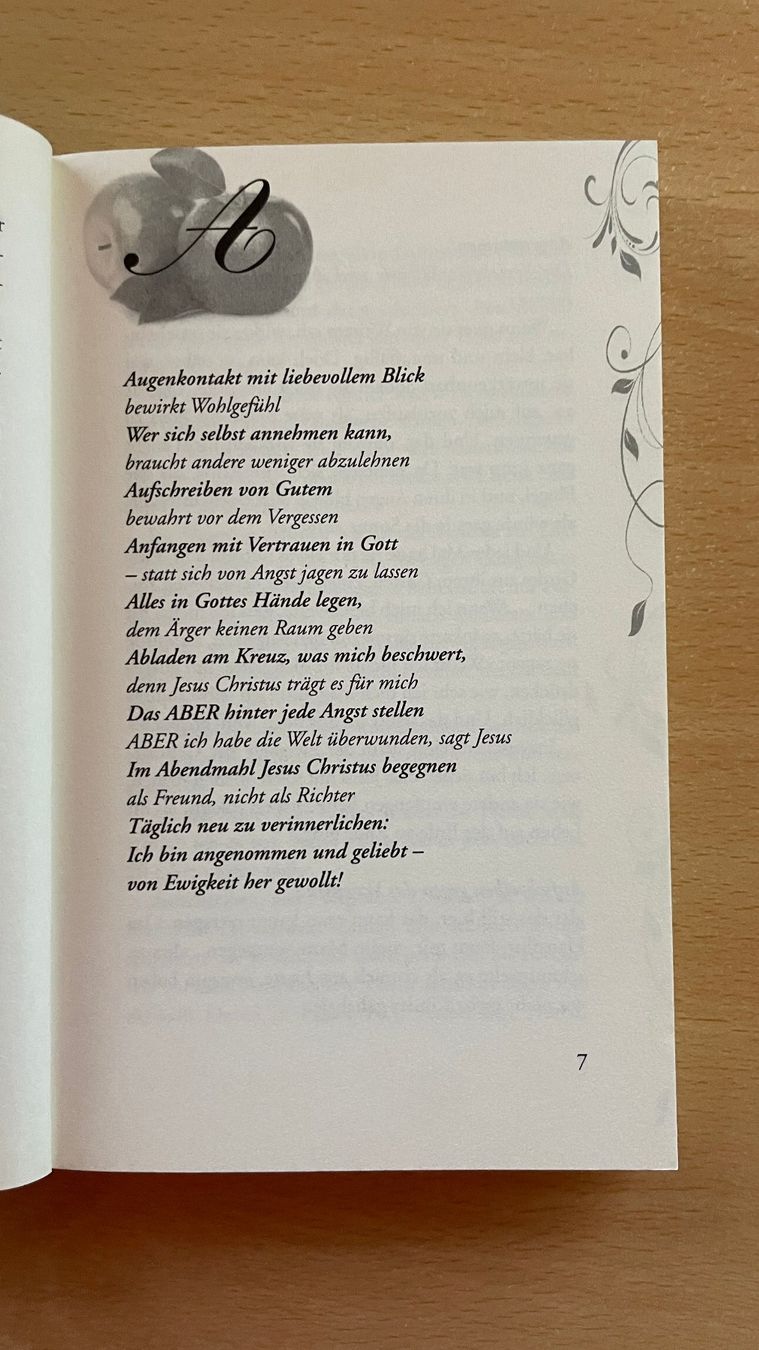 A
Augenkontakt mit liebevollem Blick
bewirkt Wohlgefühl
Wer sich selbst annehmen kann,
braucht andere weniger abzulehnen
Aufschreiben von Gutem
bewahrt vor dem Vergessen
Anfangen mit Vertrauen in Gott
– statt sich von Angst jagen zu lassen
Alles in Gottes Hände legen,
dem Ärger keinen Raum geben
Abladen am Kreuz, was mich beschwert,
denn Jesus Christus trägt es für mich
Das ABER hinter jede Angst stellen
ABER ich habe die Welt überwunden, sagt Jesus
Im Abendmahl Jesus Christus begegnen
als Freund, nicht als Richter
Täglich neu zu verinnerlichen:
Ich bin angenommen und geliebt –
von Ewigkeit her gewollt!
7